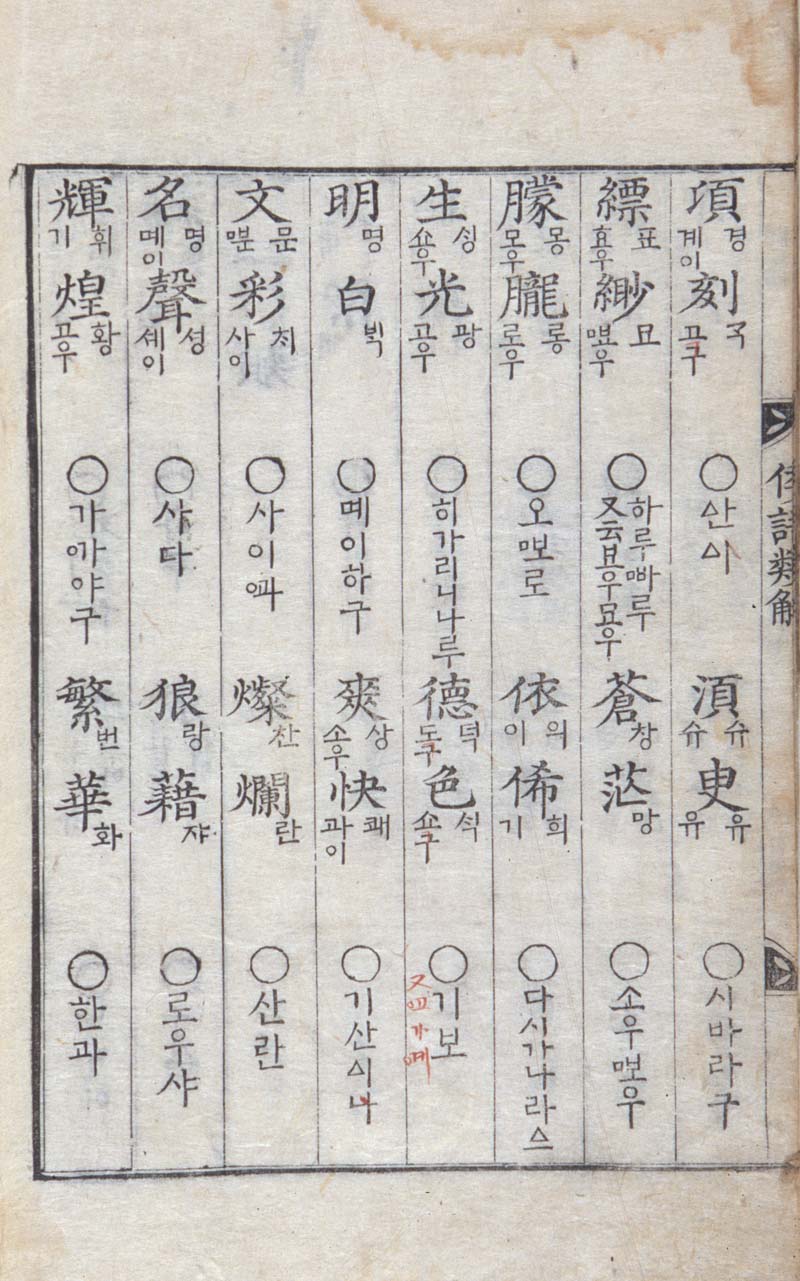 倭語類解
頃 경 계이 刻 ᄀᆞᆨ 고구 ○ 산ᅀᅵ 須 슈 슈 臾 유 유 ○ 시바라구
縹 표 효우 緲 묘 ᄜᅭ우 ○ 하루ᄜᅡ루 又云 蒼 창 茫 망 ○ 소우ᄜᅩ우
朦 몽 모우 朧 롱 로우 ○ 오ᄜᅩ로 依 의 이 俙 희 기 ○ 다시가나라ᅀᅳ
生 ᄉᆡᆼ 쇼우 光 광 고우 ○ 히가리니나루 德 덕 도구 色 ᄉᆡᆨ 쇼구 ○ 기보 又
明 명 白 ᄇᆡᆨ ○ 몌이하구 爽 상 소우 快 쾌 과이 ○ 기산ᅀᅵ나
文 문 ᄜᅮᆫ 彩 ᄎᆡ 사이 ○ 燦 찬 爛 란 ○ 산란
名 명 몌이 聲 셩 셰이 ○ 사다 狼 랑 藉 쟈 ○ 로우샤
輝 휘 기 煌 황 고우 ○ 繁 번 華 화 ○ 한과